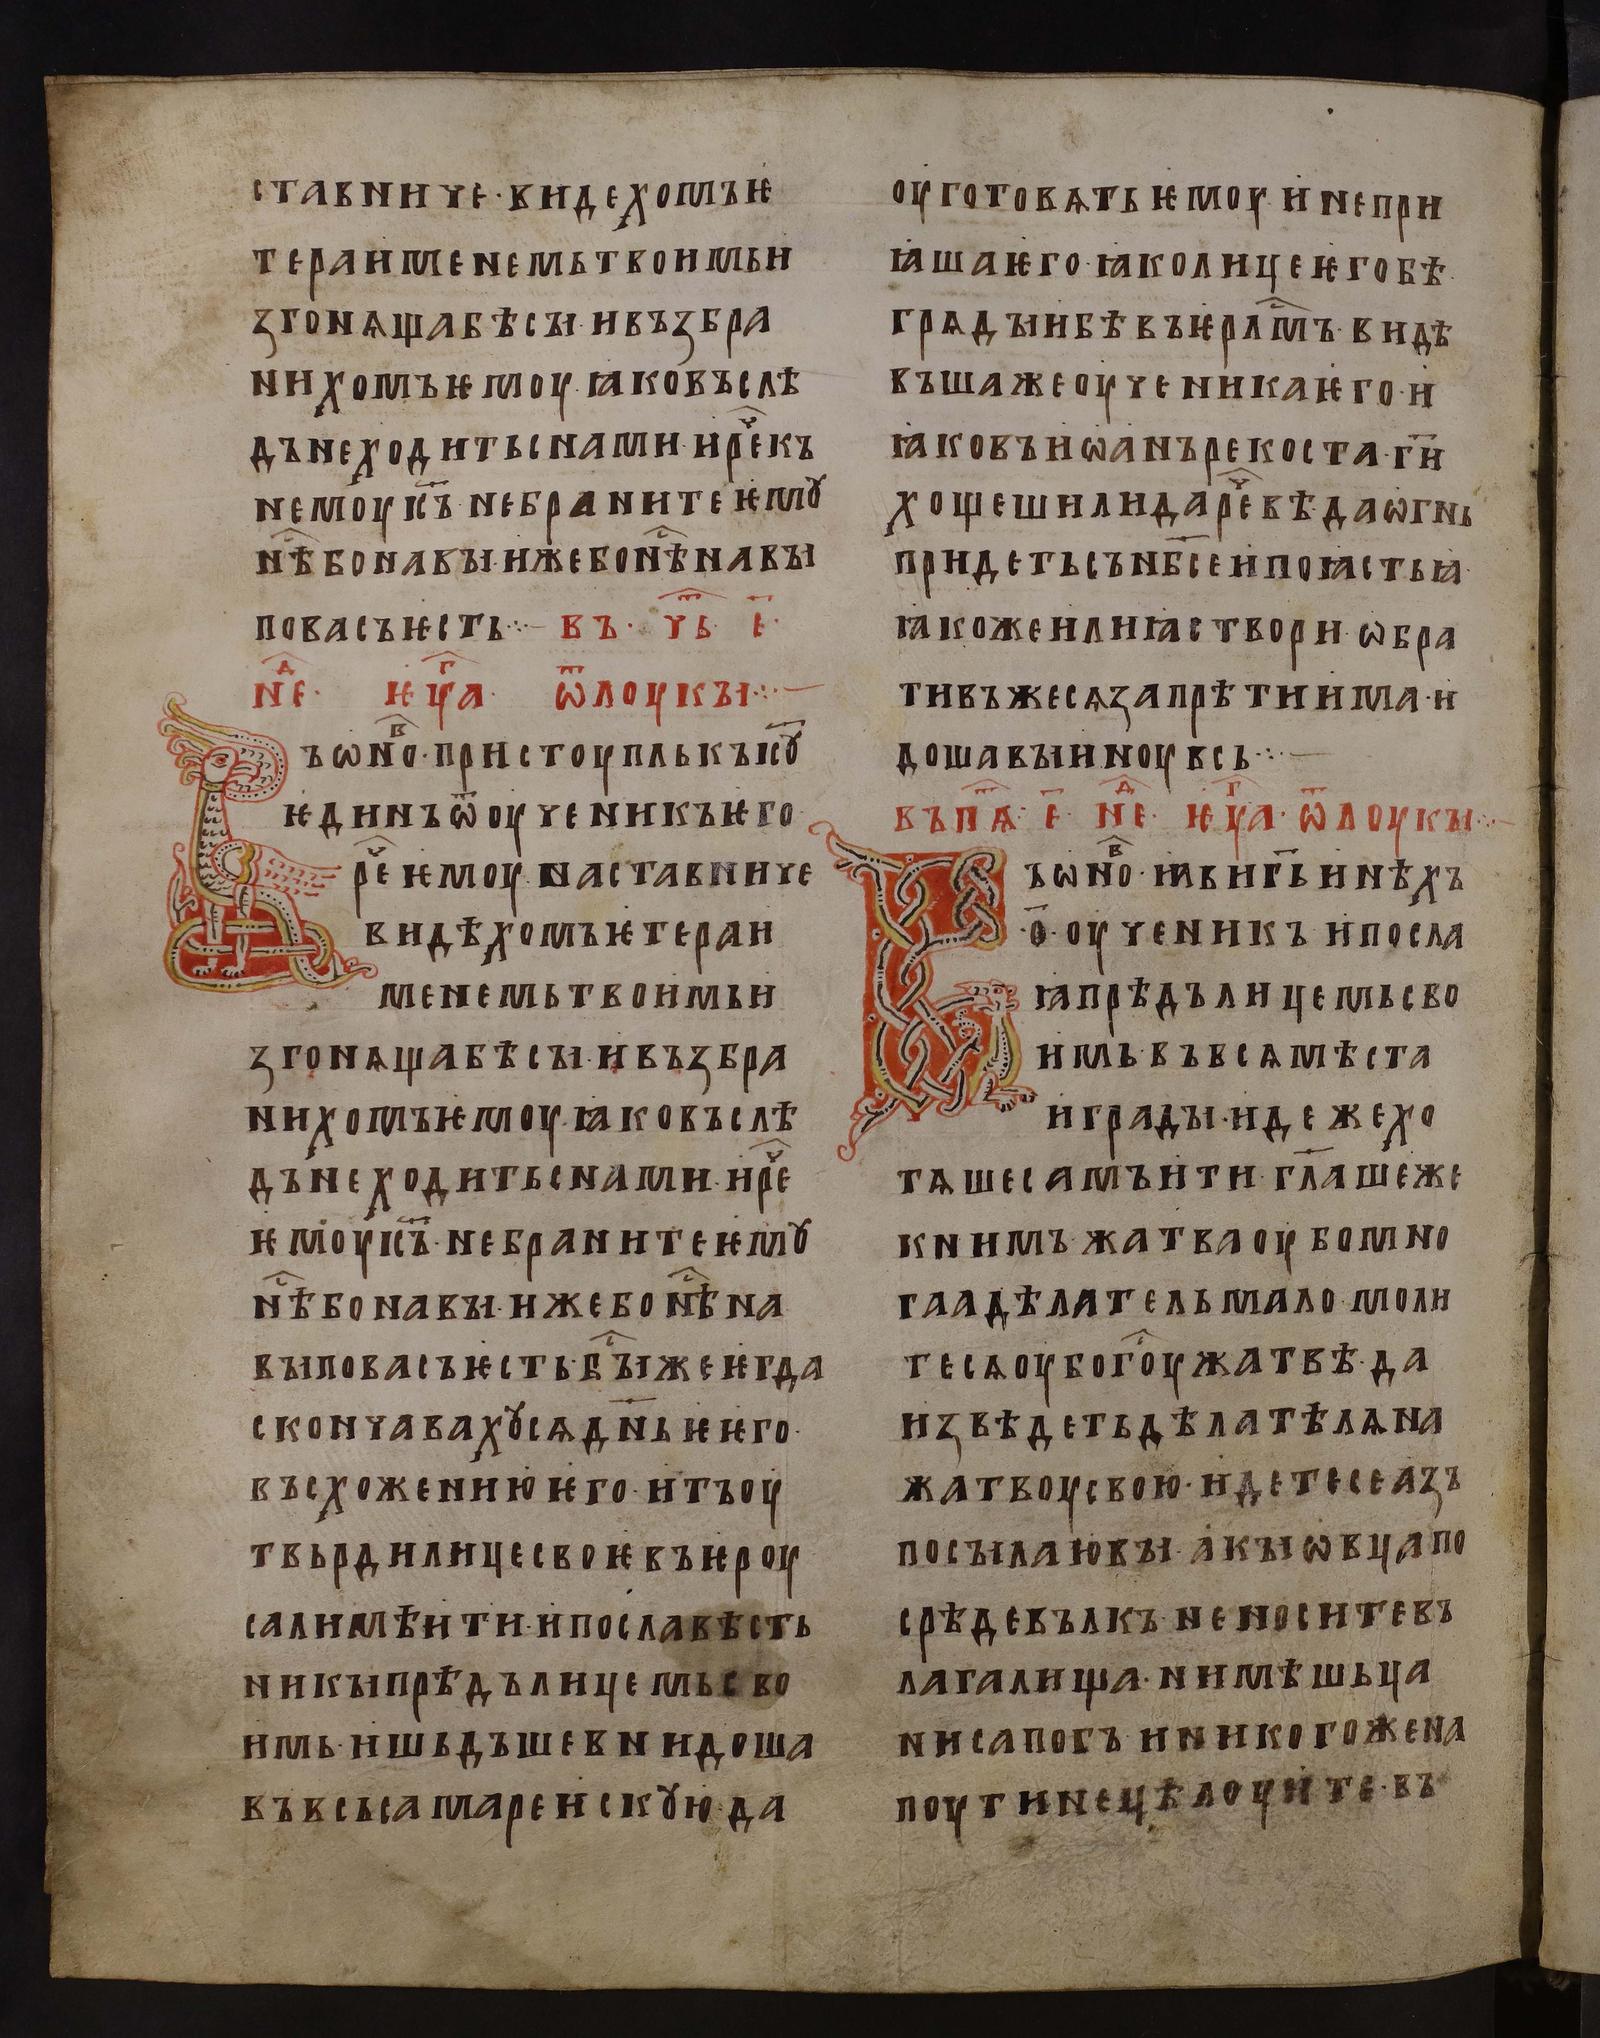 ставниче· видехомъ ѥ
тера именемь твоимь и
згонѧща бѣсы· и възбра
нихомъ ѥмоу· ꙗко въслѣ
дъ не ходить с нами· и реⷱ къ
немоу іс҃ъ· не браните ѥмꙋ
нѣⷭ бо на вы· иже бо нѣⷭ на вы
по васъ ѥсть·:· въ· чьⷮ· е҃·
неⷣ· ѥуⷢа· ѿ лоукы·:·
Въ ѡноⷡ· пристоупль къ іс҃ꙋ
ѥдинъ ѿ оученикъ ѥго·
реⷱ ѥмоу· наставниче
видѣхомъ ѥтера и
менемь твоимь и
згонѧща бѣсы· и възбра
нихомъ ѥмоу· ꙗко въслѣ
дъ не ходить с нами· и реⷱ
ѥмоу іс҃ъ· не браните ѥмꙋ
нѣⷭ бо на вы· иже бо нѣⷭ на
вы по васъ ѥсть· быⷭ же ѥгда
скончавахꙋсѧ дн҃ьѥ ѥго·
въсхожению ѥго· и тъ оу
твьрди лице своѥ въ ѥроу
салимѣ ити· и посла вѣсть
никы прѣдъ лицемь сво
имь· и шьдъше внидоша
въ вьсь самареискꙋю· да
оуготовѧть ѥмоу· и не при
ꙗша ѥго· ꙗко лице ѥго бѣ
грѧды и бѣ въ ѥрлⷭмъ· видѣ
въша же оученика ѥго· и
ꙗковъ и ѡанъ рекоста· г҃и
хощеши ли да реⷱвѣ· да ѡгнь
придеть съ нб҃се и поꙗсть ꙗ·
ꙗкоже и лиꙗ створи· ѡбра
тивъ же сѧ запрѣти има· и
доша въ ину вьсь·:·
въ пѧⷮ· е҃· неⷣ· ѥуⷢа· ѿ лоукы·:·
Въ ѡноⷡ· ꙗви г҃ь и нѣхъ
·о҃· оученикъ и посла
ꙗ прѣдъ лицемь сво
имь· въ всѧ мѣста
и грады· идеже хо
тѧше самъ ити· гл҃аше же
к нимъ жатва оубо мно
га а дѣлатель мало· моли
те сѧ оубо гⷭоу жатвѣ· да
изведеть дѣлатѣлѧ на
жатвоу свою· идете се азъ
посылаю вы· акы ѡвца по
срѣде вълкъ· не носите въ
лагалища· ни мѣшьца
ни сапогъ· и никогоже на
поути не цѣлоуите· въ